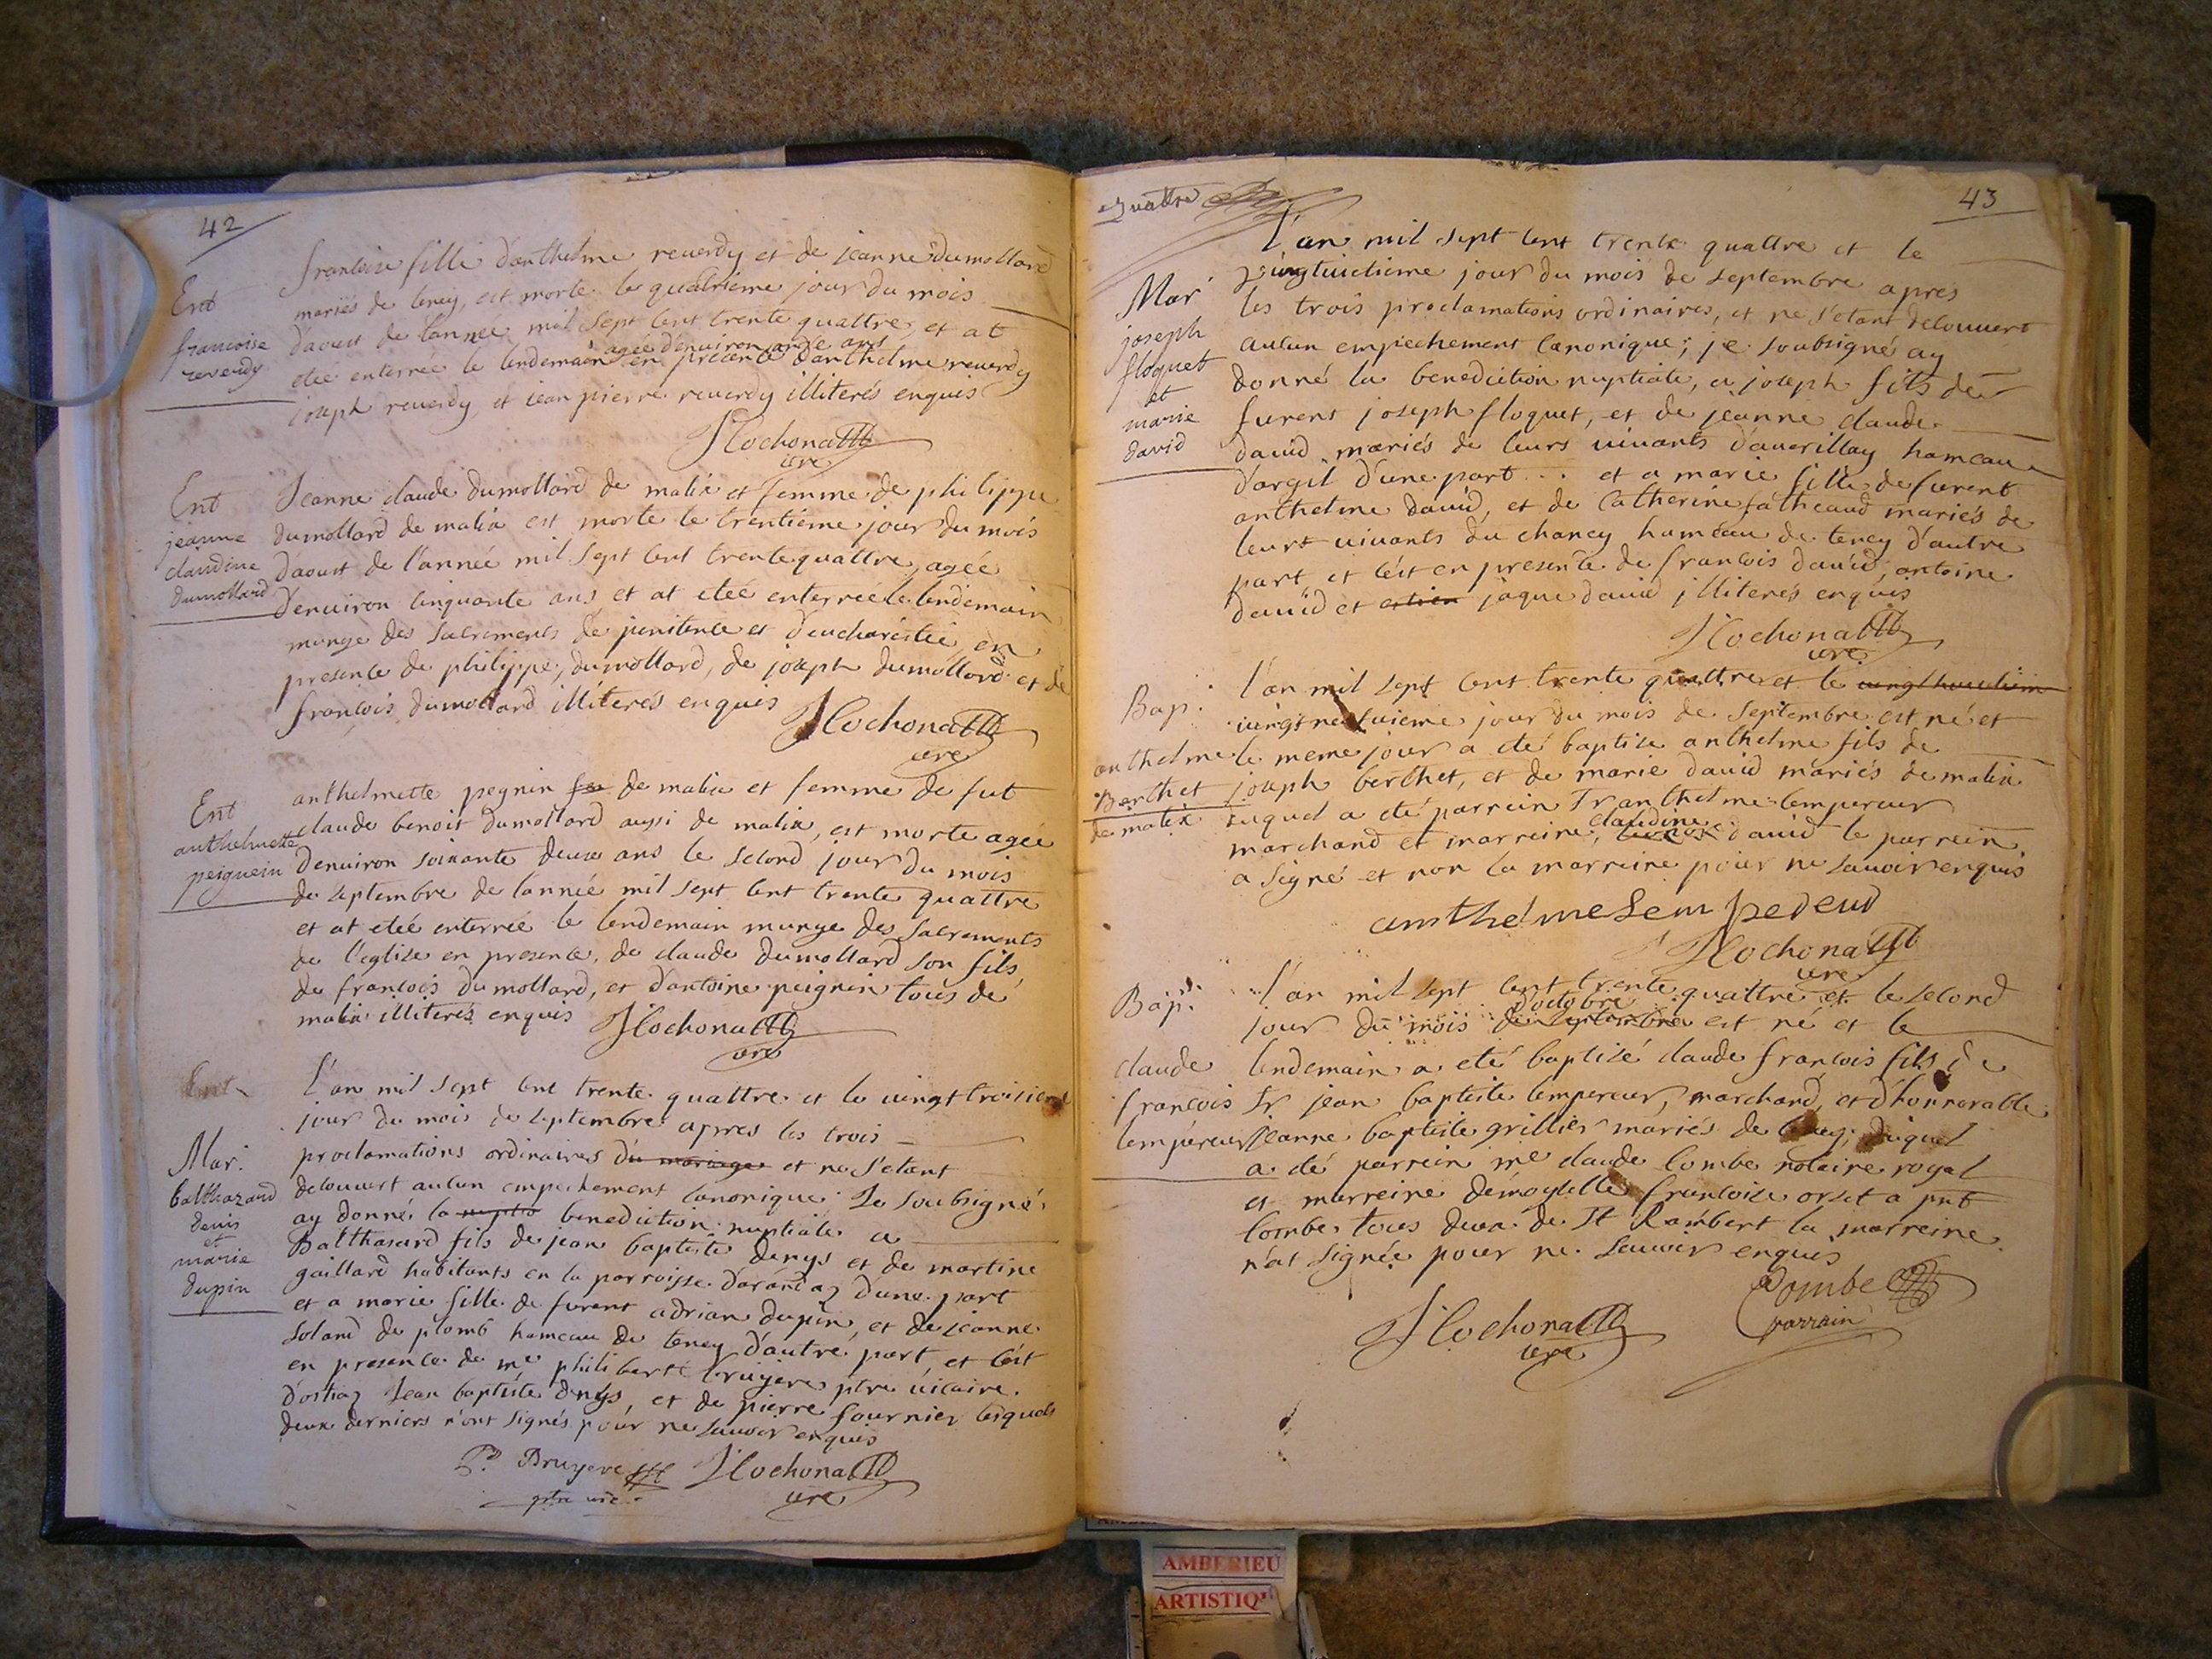 42
Ent
francoise
reverdy
francoise fille d'anthelme reuerdy et de jeanne dumollard
mariés de tency, est morte le quatrieme jour du mois
d'aoust de l'année mil sept cent trente quattre, et at
agee d'enuiron onze ans
eteé enterreé le lendemain en presence d'anthelme reuerdy
joseph reuerdy, et jean pierre reuerdy illiterés enquis
Cochonat
cure
Ent
jeanne
claudine
dumollard
Jeanne claude dumollard de malix et femme de philippe
dumollard de malix est morte le trentieme jour du mois
d'aoust de l'année mil sept cent trente quattre, ageé
d'enuiron cinquante ans, et at eteé enterreé le lendemain
munye des sacrements de penitence et d'eucharestie, en
presence de philippe, dumollard, de joseph dumollard et de
francois dumollard illiterés enquis
Cochonat
cure
Ent
anthelmette
peignein
anthelmette pegnin de malix et femme de fut
claude benoit dumollard aussi de malix, est morte ageé
d'enuiron soixante deux ans le second jour du mois
de septembre de l'année mil sept cent trente quattre
et at eteé enterreé le lendemain munye des sacrements
de l'eglise en presence, de claude dumollard son fils
de francois dumollard, et d'antoine peignin tous de
malix illiterés enquis
Cochonat
cure
Ent
Mar.
balthazard
denis
et
marie
dupin
l'an mil sept cent trente quattre et le uingt troisieme
jour du mois de septembre apres les trois
proclamations ordinaires du mariage et ne s'etant
decouuert aucun empechement canonique Je soubsigné
ay donné la nuptio benediction nuptiale a
Balthasard fils de jean baptiste denys et de martine
gaillard habitants en la parroisse d'arandaz d'une part
et a marie fille de furent adrian dupin, et de jeanne
soland de plomb hameau de tency d'autre part, et c'est
en presence de me philibert bruyere ptre uicaire
d'ostiaz jean baptiste denys, et de pierre fournier lesquels
deux derniers n'ont signés pour ne scauoir enquis
Bruyere
ptre vic.
Cochonat
cure
quattre
43
Mar
joseph
floquet
et
marie
david
L'an mil sept cent trente quattre et le
uingtuictieme jour du mois de septembre apres
les trois proclamations ordinaires, et ne s'etant decouuert
aucun empechement canonique; je soubsigné ay
donné la benediction nuptiale, a joseph fils de
furent joseph floquet, et de jeanne claude
dauid mariés de leurs uiuants d'auerillay hameau
d'argil d'une part .. et a marie fille de furent
anthelme dauid, et de Catherine fatheaud mariés de
leurs uiuants du chaney hameau de tency d'autre
part et c'est en presence de francois dauid, antoine
dauid et jaque dauid jlliterés enquis
Cochonat
cure
Bap.
anthelme
Berthet
de malix
l'an mil sept cent trente quattre et le
uingt neuuieme jour du mois de septembre est né et
le meme jour a eté baptise anthelme fils de
joseph berthet, et de marie dauid mariés de malix
duquel a eté parrein Sr anthelme lempereur
claudine
marchand et marreine, dauid le parrein
a signé et non la marreine pour ne sauoir enquis
anthelme Lempereur
Cochonat
cure
Bap.
claude
francois
lempereur
l'an mil sept cent trente quattre et le second
d'octobre
jour du mois de septembre est né et le
lendemain a eté baptisé claude francois fils de
Sr jean baptiste lempereur, marchand, et d'honnorable
jeanne baptiste grillier mariés de tency; duquel
a eté parrein me claude Combe notaire royal
et marreine demoyselle francoise orset a pnt
Combe tous deux de St Rambert la marreine
n'at signée pour ne sauoir enquis
Combe
parrain
Cochonat
cure
AMBERIEU
ARTISTIQ